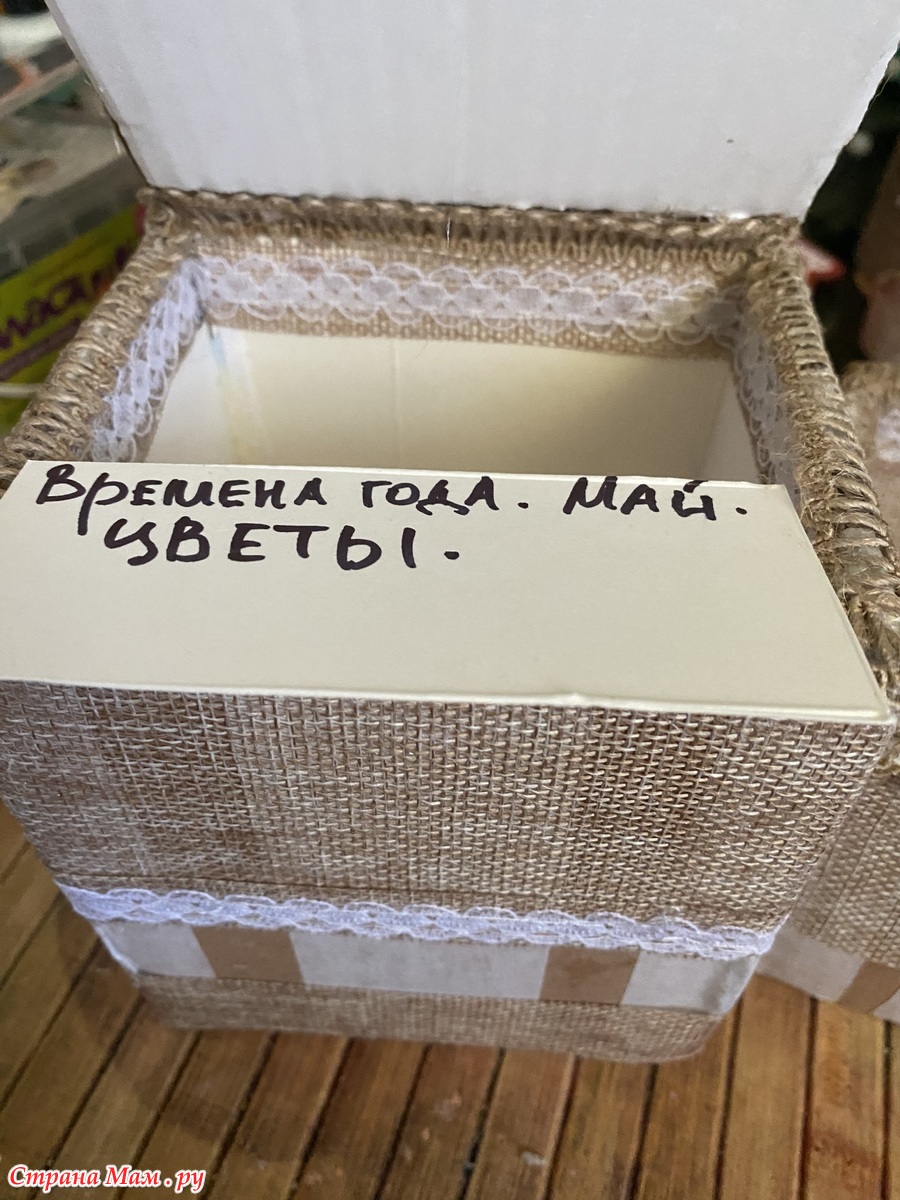 Времена года. Май.
Цветы.
Страна Мам.ру